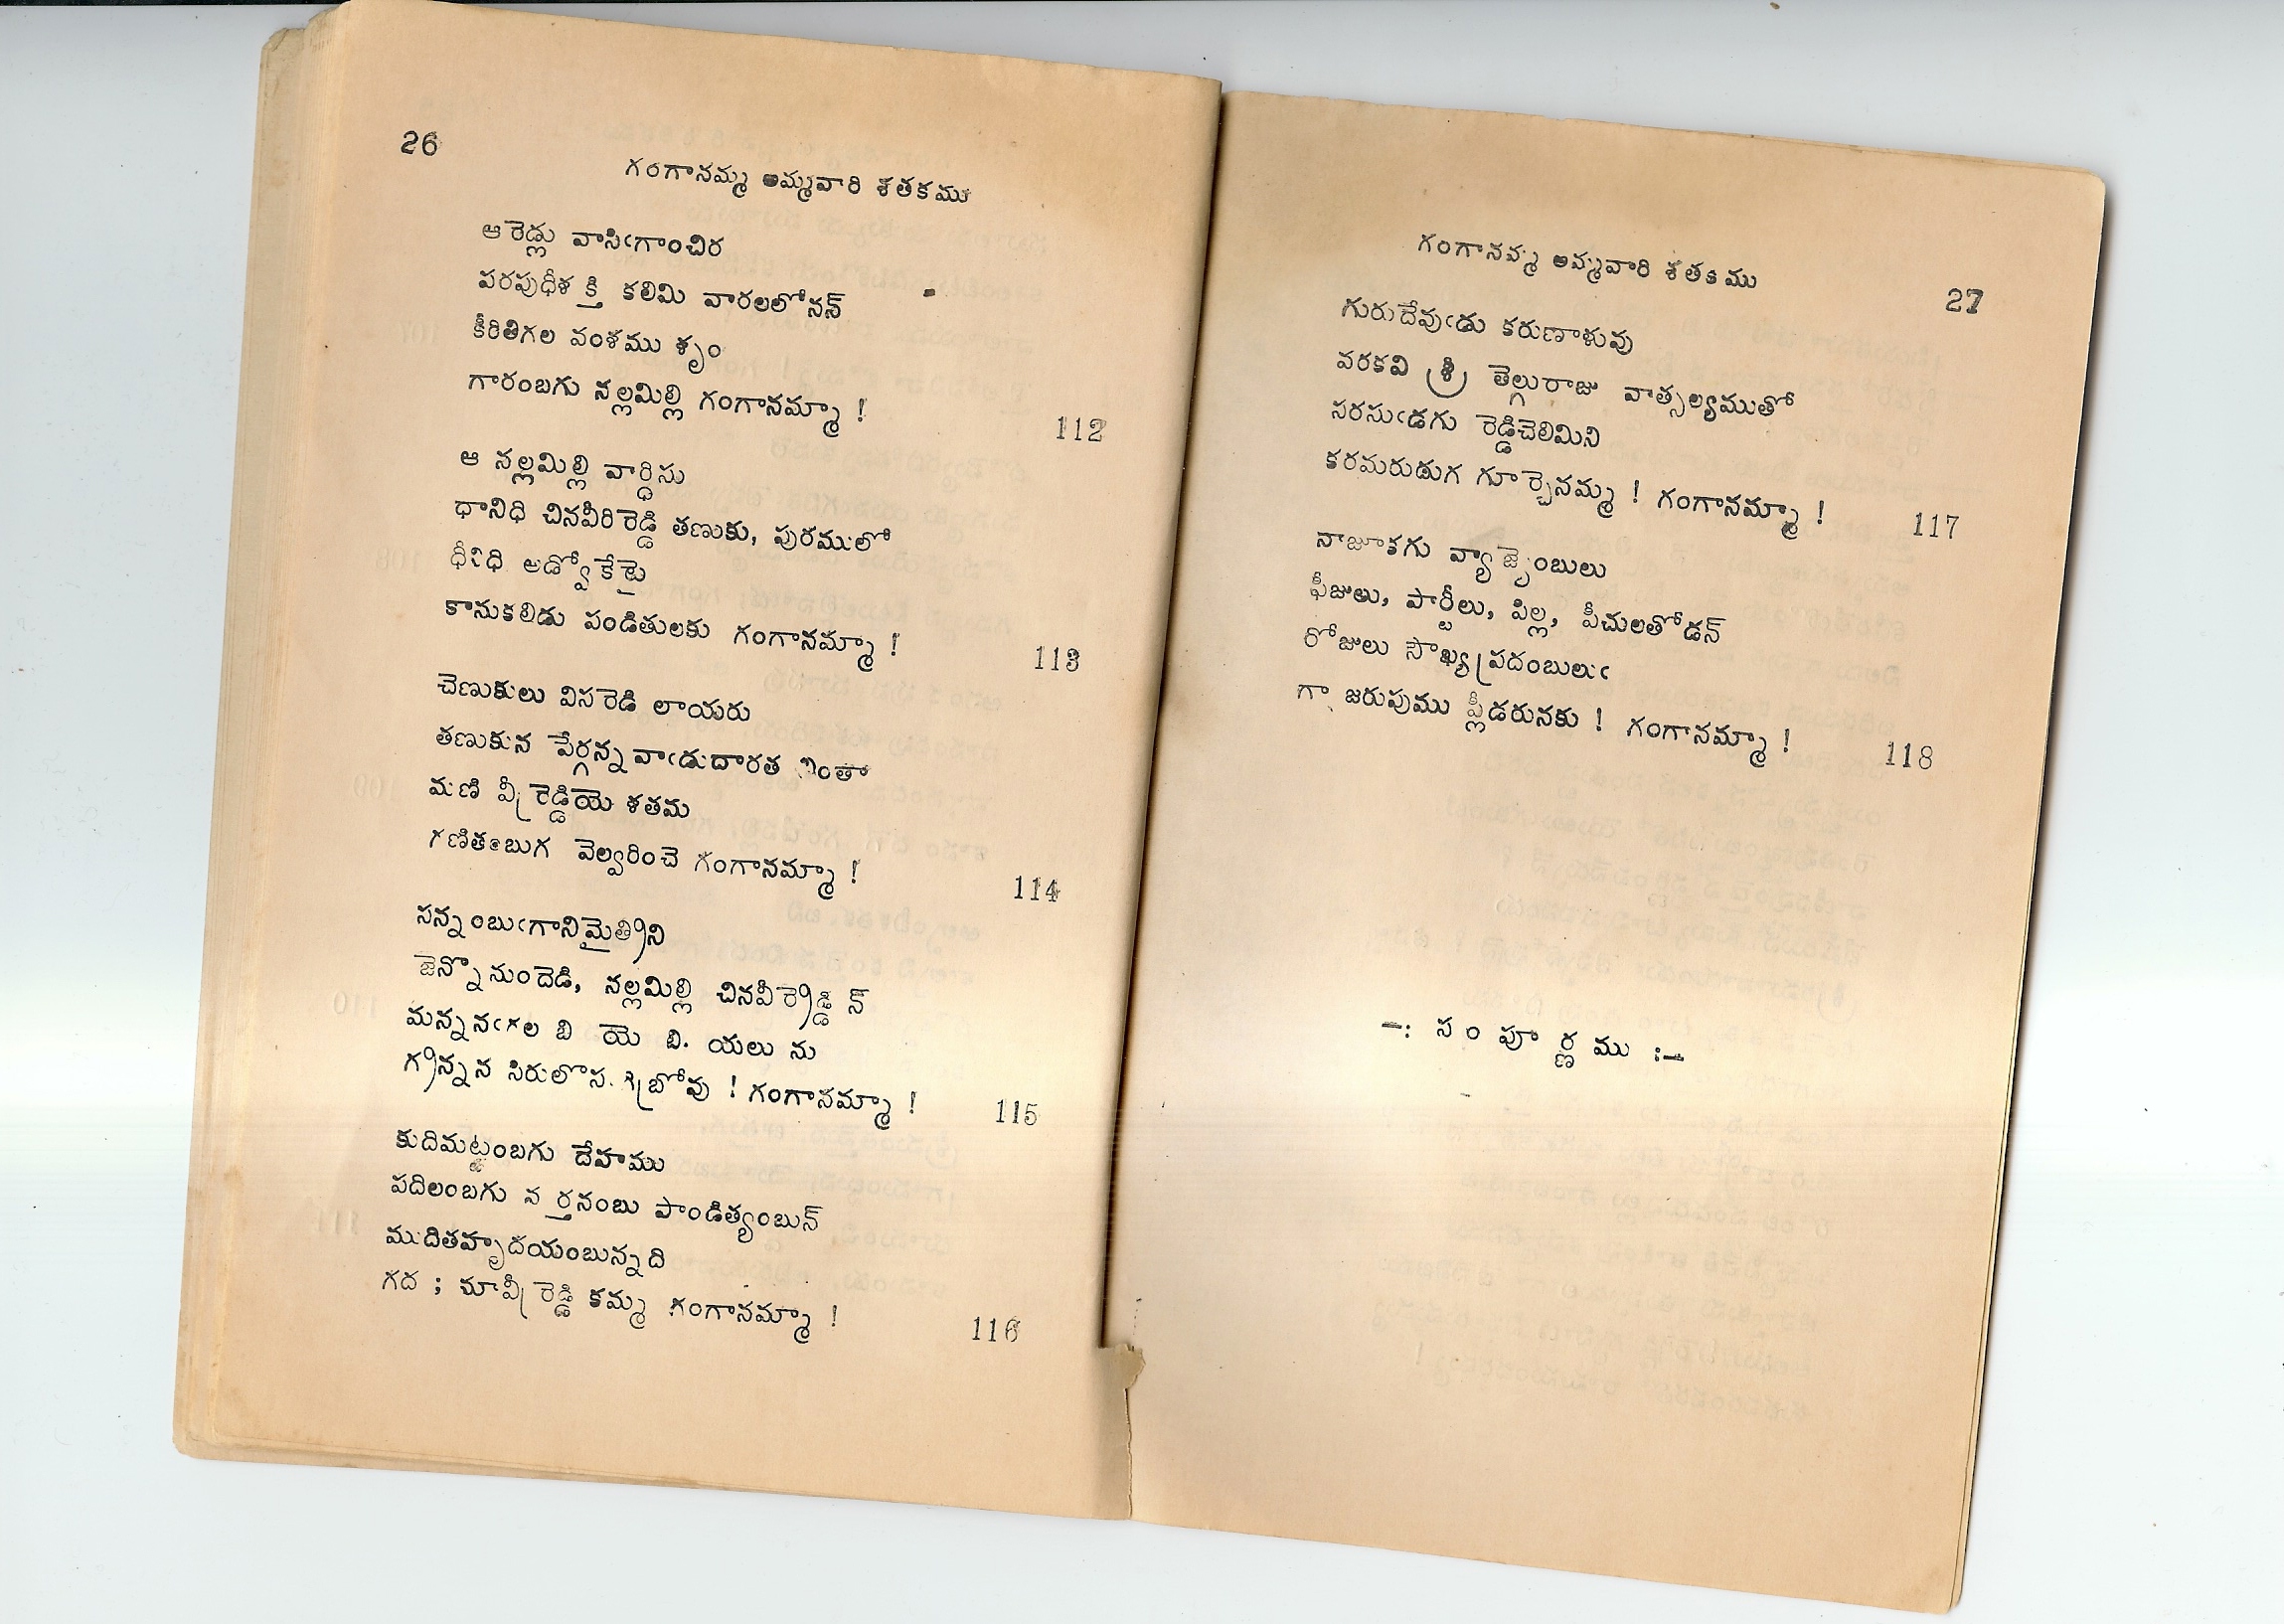 26
గంగానమ్మ అమ్మవారి శతకము
ఆరెడ్లు వాసిఁగాంచిర
పరపుధీశక్తి కలిమి వారలలోనన్
కీరితిగల వంశము శృం
గారంబగు నల్లమిల్లి గంగానమ్మా !
112
ఆ నల్లమిల్లి వార్ధిసు
ధానిధి చినవీరిరెడ్డి తణుకు, పురములో
ధీనిధి అడ్వోకేటై
కానుకలిడు పండితులకు గంగానమ్మా !
113
చెణుకులు విసరెడి లాయరు
తణుకున పేర్గన్నవాఁడుదారత
మణి వీర్రెడ్డియె శతమ
గణితంబుగ వెల్వరించె గంగానమ్మా !
114
సన్నంబుఁగానిమైత్రిని
జెన్నొనుందెడి, నల్లమిల్లి చినవీర్రెడ్డిన్
మన్ననఁగల బి యె బి. యలును
గ్రన్నన సిరులొస. బ్రోవు ! గంగానమ్మా !
115
కుదిమట్టంబగు దేహము
పదిలంబగు నర్తనంబు పాండిత్యంబున్
ముదితహృదయంబున్నది
గద ; మావీర్రెడ్డి కమ్మ గంగానమ్మా !
116
గంగానమ్మ అమ్మవారి శతకము
27
గురుదేవుఁడు కరుణాళువు
వరకవి శ్రీ తెల్గురాజు వాత్సల్యముతో
సరసుఁడగు రెడ్డిచెలిమిని
కరమరుదుగ గూర్చెనమ్మ ! గంగానమ్మా !
117
నాజూకగు వ్యాజ్యెంబులు
ఫీజులు, పార్టీలు, పిల్ల, పీచులతోడన్
రోజులు సౌఖ్యప్రదంబులుఁ
గా జరుపుము ప్లీడరునకు ! గంగానమ్మా !
118
–: స ం పూ ర్ణ ము :–